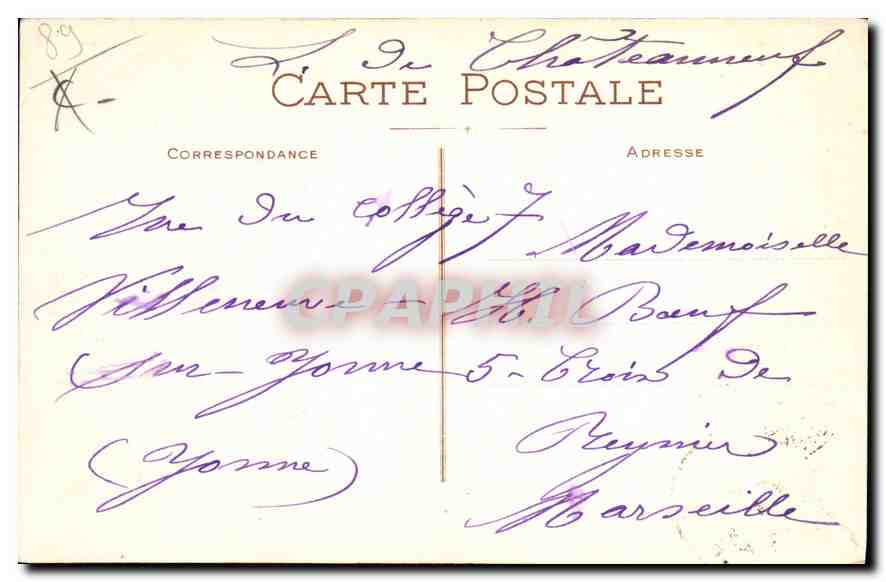 89
L. de Châteauneuf
CARTE POSTALE
CORRESPONDANCE
ADRESSE
Rue du Collège 7
Villeneuve-
Sur-Yonne
(Yonne)
Mademoiselle
H. Bœuf
5 - Croix de
Reynier
Marseille
CPAPHIL